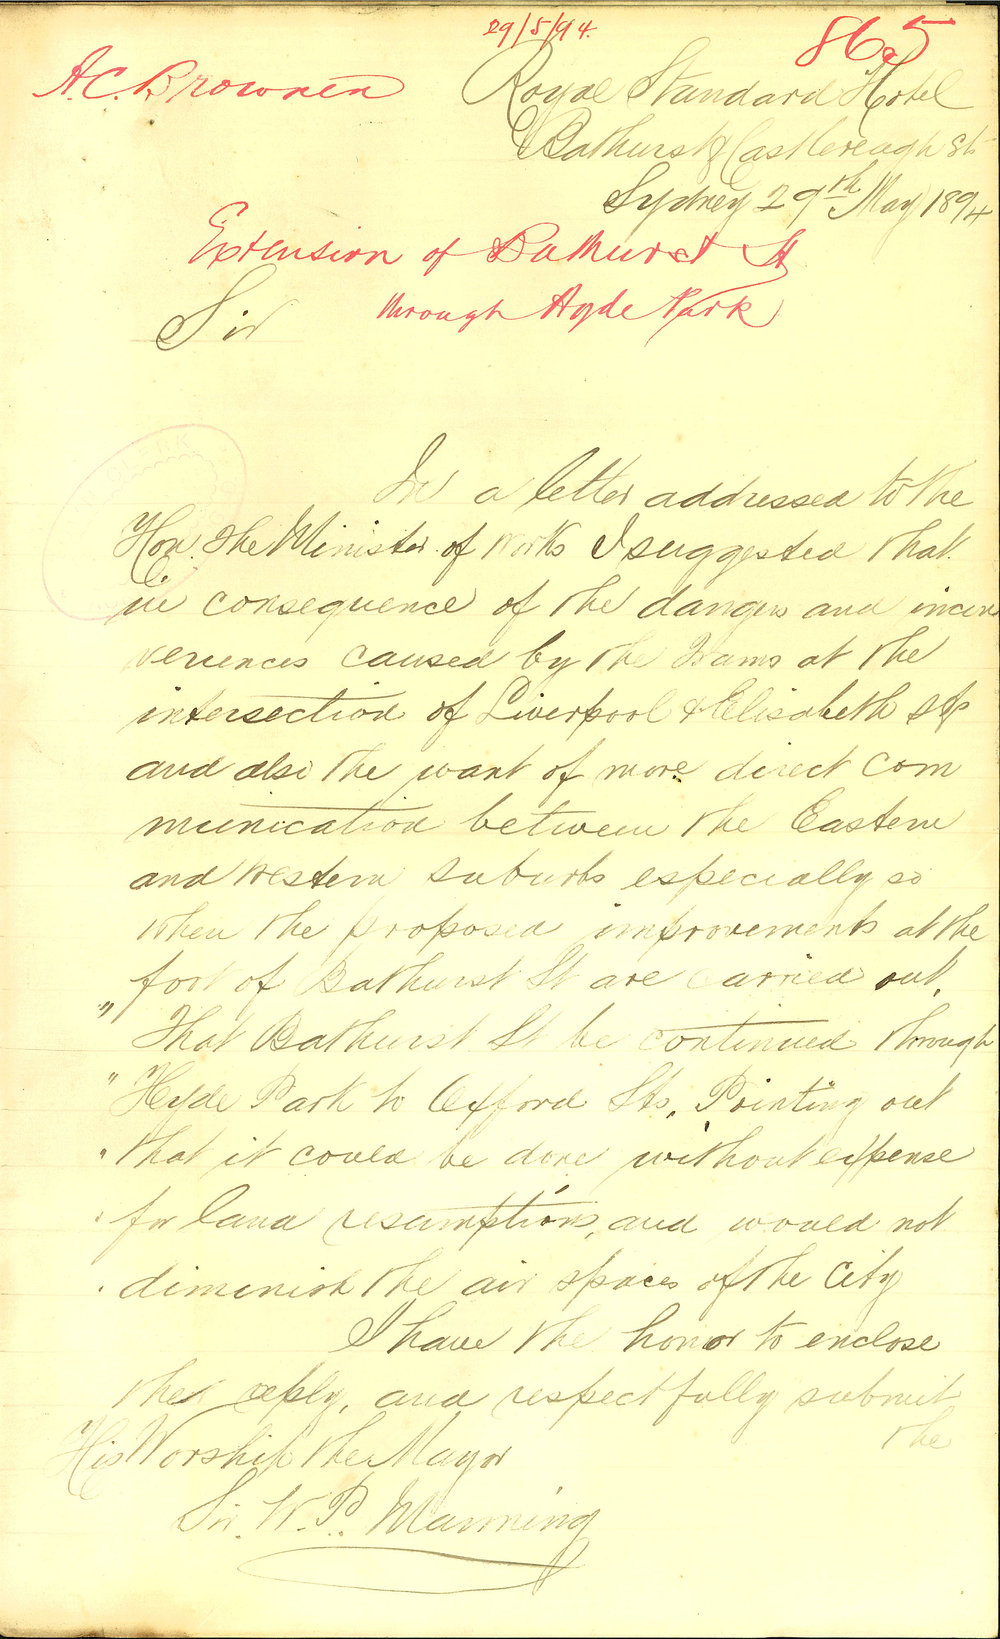 29/5/94.
865
A.C. Brownen
Royal Standard Hotel
Bathurst & Castlereagh St
Sydney 29th May 1894
Extension of Bathurst St
through Hyde Park
Sir
In a letter addressed to the
Hon. the Minister of Works I suggested that
in consequence of the dangers and incon
veniences caused by the Trams at the
intersection of Liverpool & Elisabeth Sts
and also the want of more direct com
munication between the Eastern
and Western Suburbs especially so
when the proposed improvements at the
foot of Bathurst St are carried out.
" That Bathurst St be continued through
" Hyde Park to Oxford Sts. Pointing out
" that it could be done without expense
" for land resumptions, and would not
" diminish the air spaces of the City
I have the honor to enclose
the reply, and respectfully submit
the
His Worship the Mayor
Sir. W. P. Manning